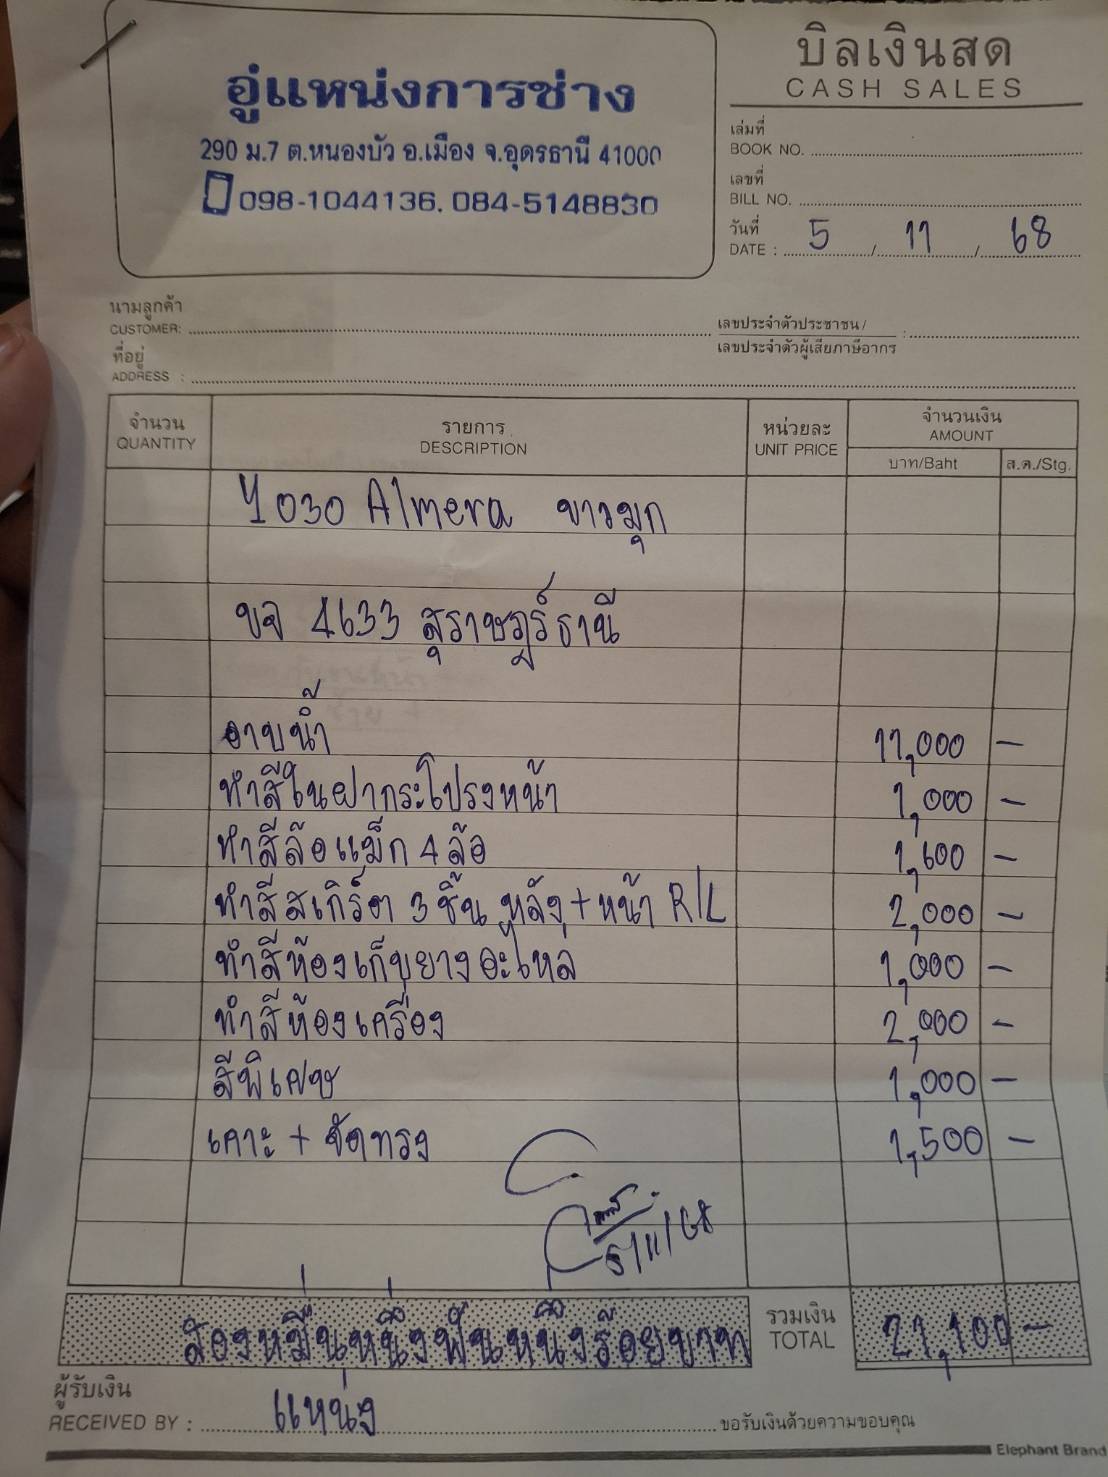 อู่แหน่งการช่าง
290 ม.7 ต.หนองบัว อ.เมือง จ.อุดรธานี 41000
098-1044136, 084-5148830
บิลเงินสด
CASH SALES
เล่มที่
BOOK NO.
เลขที่
BILL NO.
วันที่
DATE : 5 / 11 / 68
นามลูกค้า
CUSTOMER:
เลขประจำตัวประชาชน /
เลขประจำตัวผู้เสียภาษีอากร :
ที่อยู่
ADDRESS :
จำนวน รายการ หน่วยละ จำนวนเงิน
QUANTITY DESCRIPTION UNIT PRICE AMOUNT
บาท/Baht ส.ต./Stg.
Y030 Almera ขาวมุก
ขจ 4633 สุราษฎร์ธานี
อาบน้ำ 11,000 -
ทำสีในฝากระโปรงหน้า 1,000 -
ทำสีล้อแม็ก 4 ล้อ 1,600 -
ทำสีสเกิร์ต 3 ชิ้น หลัง + หน้า R/L 2,000 -
ทำสีห้องเก็บยางอะไหล 1,000 -
ทำสีห้องเครื่อง 2,000 -
สีพิเศษ 1,000 -
เคาะ + ขัดทรง 1,500 -
5/11/68
สองหมื่นหนึ่งพันหนึ่งร้อยบาท
รวมเงิน
TOTAL 21,100 -
ผู้รับเงิน
RECEIVED BY : แหน่ง ขอรับเงินด้วยความขอบคุณ
Elephant Brand